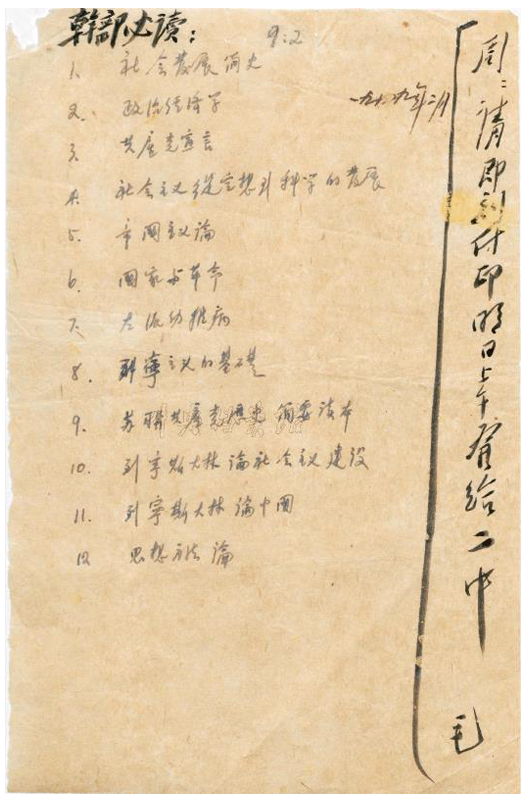 幹部必读：
9:2
1、 社会發展簡史
2、 政治经济学
3、 共產党宣言
4、 社会主义從空想到科学的發展
5、 帝国主义論
6、 国家与革命
7、 左派幼稚病
8、 列寧主义的基礎
9、 苏聯共產党歷史簡要读本
10、 列寧斯大林論社会主义建设
11、 列寧斯大林論中国
12 思想方法論
一九四九年二月
周：請即刻付印明日上午發給二中
毛